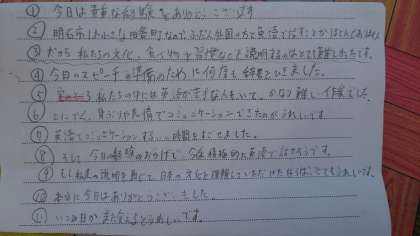 ① 今日は貴重な体験をありがとうございます
② 明石市は小さな田舎町なので、ふだん外国の方と英語で話すことがほとんどありません
③ だから 私たちの文化、食べ物や習慣など説明するのはとても難しかったです。
④ 今日のスピーチの準備のために何度も辞書をひきました。
⑤ 私たちの中には英語が苦手な人もいて、かなり難しい作業でした
⑥ とにかく、身ぶりや表情でコミュニケーションできたのがうれしいです
⑦ 英語でコミュニケーションする 時間をすごせました。
⑧ そして 今日の経験のおかげで、今後積極的に英語で話せそうです。
⑨ もし私達の説明を通じて 日本の文化を理解していただけたならばとてもうれしいです。
⑩ 本当に今日はありがとうございました。
⑪ いつの日か また会えるとうれしいです。